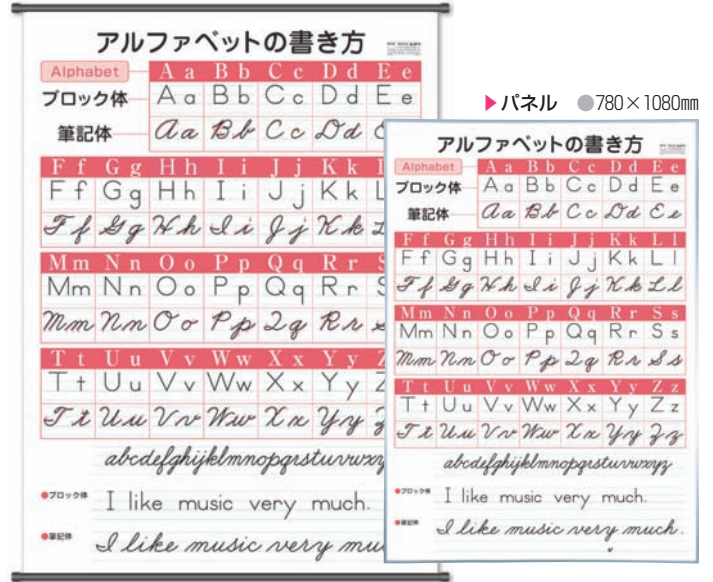 アルファベットの書き方
Alphabet
A a B b C c D d E e
ブロック体
A a B b C c D d E e
筆記体
A a B b C c D d E
F f G g H h I i J j K k L
F f G g H h I i J j K k L
F f G g H h I i J j K k L
M m N n O o P p Q q R r S
M m N n O o P p Q q R r S
M m N n O o P p Q q R r S
T t U u V v W w X x Y y Z
T t U u V v W w X x Y y Z
T t U u V v W w X x Y y Z
abcdefghijklmnopqrstuvwxy
●ブロック体 I like music very much.
●筆記体 I like music very mu
▶パネル ●780×1080㎜
アルファベットの書き方
Alphabet
A a B b C c D d E e
ブロック体
A a B b C c D d E e
筆記体
A a B b C c D d E e
F f G g H h I i J j K k L l
F f G g H h I i J j K k L l
F f G g H h I i J j K k L l
M m N n O o P p Q q R r S s
M m N n O o P p Q q R r S s
M m N n O o P p Q q R r S s
T t U u V v W w X x Y y Z z
T t U u V v W w X x Y y Z z
T t U u V v W w X x Y y Z z
abcdefghijklmnopqrstuvwxyz
●ブロック体 I like music very much.
●筆記体 I like music very much.